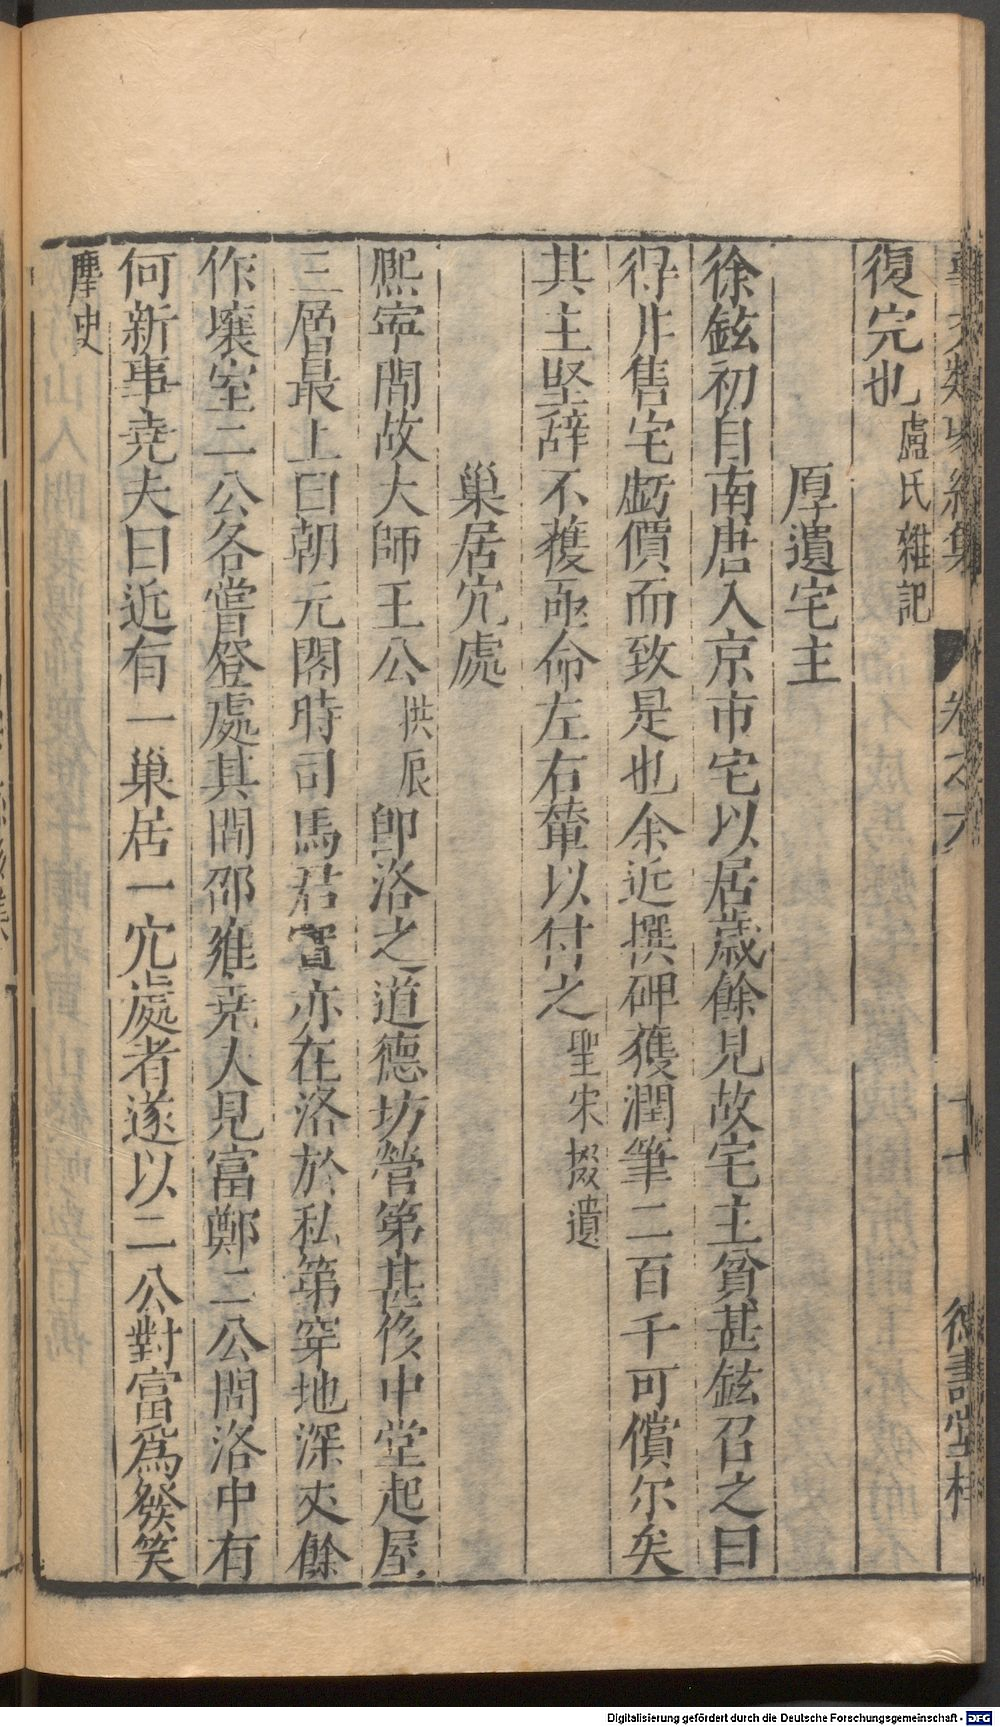 事文類聚續集 卷之六 十 德壽堂梓
復完也盧氏雜記
厚遺宅主
徐鉉初自南唐入京市宅以居歲餘見故宅主貧甚鉉召之曰
得非售宅虧價而致是也余近撰碑獲潤筆二百千可償尔矣
其主堅辞不獲亟命左右輦以付之聖宋掇遺
巢居穴處
熈寜間故大師王公拱辰卽洛之道德坊營第甚侈中堂起屋
三層最上曰朝元閣時司馬君實亦在洛於私第穿地深丈餘
作壤室二公各嘗登處其間邵雍堯夫見富鄭二公問洛中有
何新事堯夫曰近有一巢居一穴處者遂以二公對富爲發笑
麈史
Digitalisierung gefördert durch die Deutsche Forschungsgemeinschaft - DFG